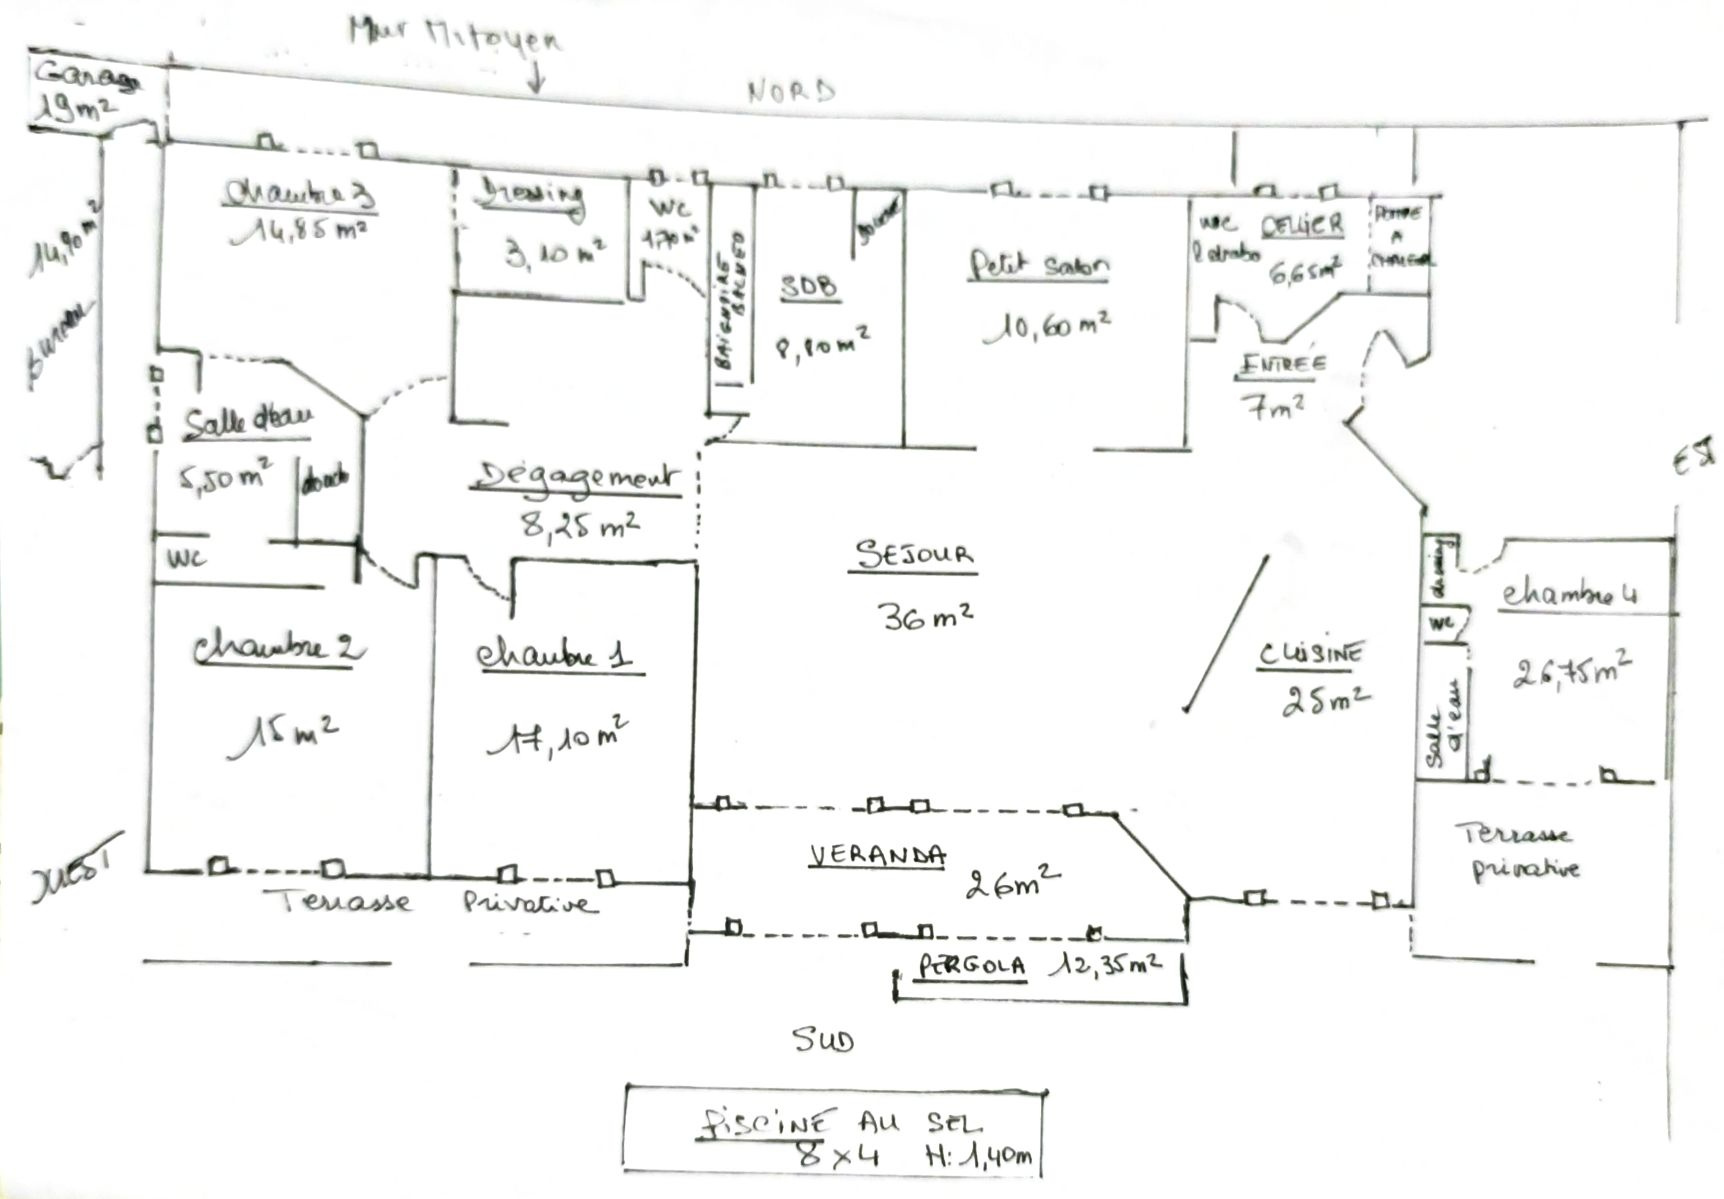 Mur Mitoyen
NORD
Garage
19 m²
14,90 m²
chambre 3
14,85 m²
Dressing
3,10 m²
WC
1,70 m²
BAIGNOIRE
BALNEO
SDB
8,80 m²
douche
Petit salon
10,60 m²
WC
CELLIER
6,65 m²
POMPE
A
CHALEUR
ENTRÉE
7 m²
EST
Salle d'eau
5,50 m²
WC
Dégagement
8,25 m²
SEJOUR
36 m²
CUISINE
25 m²
dressing
WC
Salle
d'eau
chambre 4
26,75 m²
chambre 2
15 m²
chambre 1
17,10 m²
OUEST
Terrasse Privative
VERANDA
26 m²
Terrasse
privative
PERGOLA 12,35 m²
SUD
PISCINE AU SEL
8 x 4 H: 1,40m